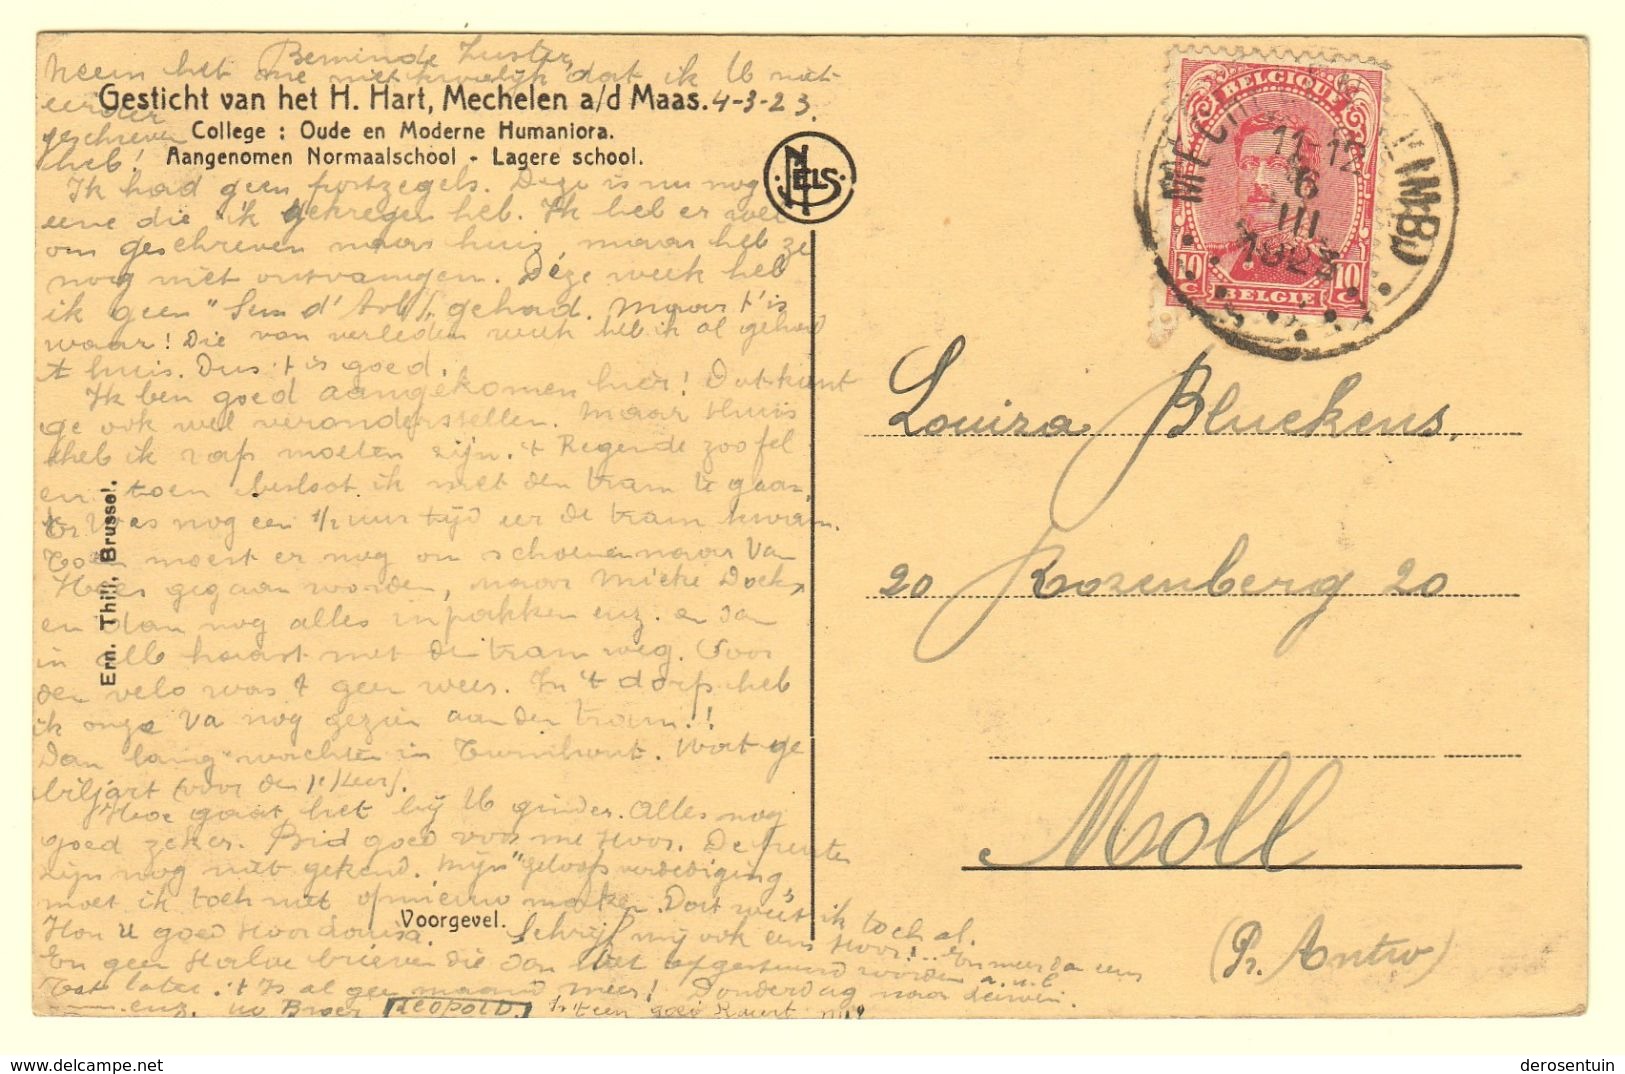 Beminde Zuster,
Neem het me niet kwalijk dat ik U niet
eerder
Gesticht van het H. Hart, Mechelen a/d Maas. 4-3-23.
geschreven
College : Oude en Moderne Humaniora.
heb!
Aangenomen Normaalschool - Lagere school.
NELS
Ik had geen postzegels. Deze is nu nog
eene die ik gekregen heb. Ik heb er wel
om geschreven naar huiz, maar heb ze
nog niet ontvangen. Déze week heb
ik geen "Sem d' gehad. Maar t'is
waar! Die van verleden week heb ik al gehad
t huis. Dus 't is goed.
Ik ben goed aangekomen hier! Dat kunt
ge ook wel veronderstellen. Maar thuis
heb ik rap moeten zijn. 't Regende zoo fel
en toen besloot ik met den tram te gaan.
Er was nog een 1/2 uur tijd eer de tram kwam.
Toen moest er nog om schoenen naar Van
Hees gegaan worden, naar Mieke
en dan nog alles inpakken enz. en dan
in alle haast met den tram weg. Voor
den velo was 't geen weer. In 't dorp heb
ik onze Va nog gezien aan den tram!!
Dan lang wachten in Turnhout. Wat ge
biljart (voor den 1e keer).
Hoe gaat het bij U ginder. Alles nog
goed zeker. Bid goed voor me hoor. De punten
zijn nog niet gekend. Mijn "geloofsverdediging"
moet ik toch niet opnieuw maken. Dat weet ik toch al.
Voorgevel.
Hou U goed hoor Louisa. Schrijf mij ook eens hoor!.. En meer dan eens
En geen halve brieven die dan niet afgestuurd worden a.u.b
Tot later. 't Is al geen maand meer! Donderdag naar Leuven.
enz. uw Broer LEOPOLD. Is 't een goei kaart
Ern. Thill, Brussel.
BELGIQUE
10 c 10 c
BELGIE
11-12
6
III
1923
Louiza Bluekens.
20 Rozenberg 20
Moll
(Pr. Antw)
delcampe.net
derosentuin